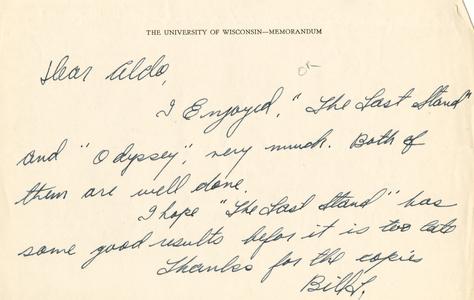 THE UNIVERSITY OF WISCONSIN—MEMORANDUM
OK
Dear Aldo,
I Enjoyed, "The Last Stand"
and "Odyssey", very much. Both of
them are well done.
I hope "The Last Stand" has
some good results befor it is too late
Thanks for the copies
Bill